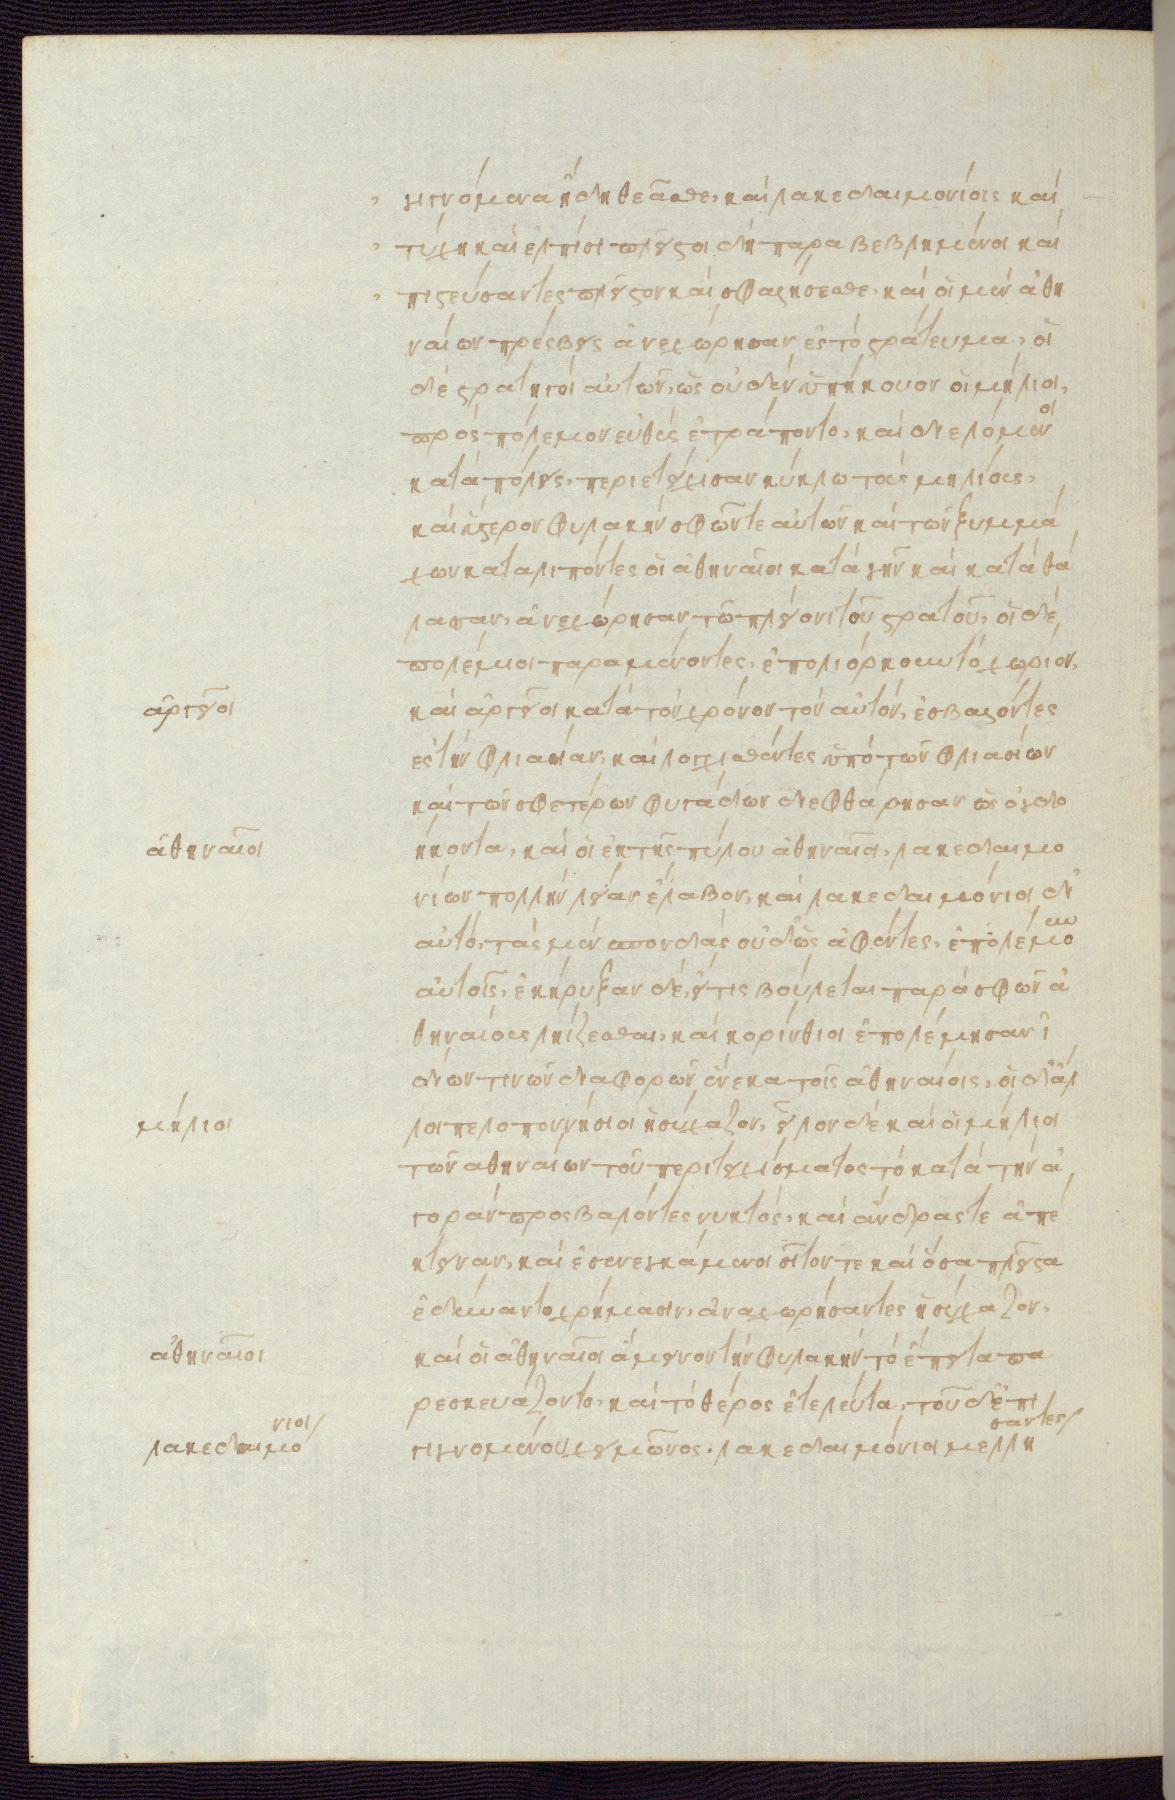 γιγνόμενα ἤδη θεᾶσθε, καὶ λακεδαιμονίοις καὶ
τύχῃ καὶ ἐλπίσι πλεῖστοι δὴ παραβεβλημένοι καὶ
πιστεύσαντες πλεῖστον καὶ σφαλήσεσθε, καὶ οἱ μὲν ἀθη
ναίων πρέσβεις ἀνεχώρησαν ἐς τὸ στράτευμα, οἱ
δὲ στρατηγοὶ αὐτῶν, ὡς οὐδὲν ὑπήκουον οἱ μήλιοι,
πρὸς πόλεμον εὐθὺς ἐτράποντο, καὶ διελόμενοι
κατὰ πόλεις, περιετείχισαν κύκλω τοὺς μηλίους,
καὶ ὕστερον φυλακὴν σφῶν τε αὐτῶν καὶ τῶν ξυμμά
χων καταλιπόντες οἱ ἀθηναῖοι κατὰ γῆν καὶ κατὰ θά
λασσαν, ἀνεχώρησαν τῶ πλείονι τοῦ στρατοῦ, οἱ δὲ
πολέμιοι παραμένοντες, ἐπολιόρκουν τὸ χωρίον,
ἀργεῖοι
καὶ ἀργεῖοι κατὰ τὸν χρόνον τὸν αὐτὸν, ἐσβαλόντες
ἐς τὴν φλιασίαν, καὶ λοχισθέντες ὑπὸ τῶν φλιασίων
καὶ τῶν σφετέρων φυγάδων διεφθάρησαν ὡς ὀγδο
ἀθηναῖοι
ήκοντα, καὶ οἱ ἐκ τῆς πύλου ἀθηναῖοι, λακεδαιμο
νίων πολλὴν λείαν ἔλαβον, καὶ λακεδαιμόνιοι δι'
αὐτὸ, τὰς μὲν σπονδὰς οὐδ' ὣς ἀφέντες, ἐπολέμουν
αὐτοῖς, ἐκήρυξαν δὲ, εἴ τις βούλεται παρὰ σφῶν ἀ
θηναίους ληίζεσθαι, καὶ κορίνθιοι ἐπολέμησαν ἰ
δίων τινῶν διαφορῶν ἕνεκα τοῖς ἀθηναίοις, οἱ δ' ἄλ
μήλιοι
λοι πελοποννήσιοι ἡσύχαζον, εἷλον δὲ καὶ οἱ μήλιοι
τῶν ἀθηναίων τοῦ περιτειχίσματος τὸ κατὰ τὴν ἀ
γορὰν προσβαλόντες νυκτὸς, καὶ ἄνδρας τε ἀπέ
κτειναν, καὶ ἐσενεγκάμενοι σῖτόν τε καὶ ὅσα πλεῖστα
ἐδύναντο χρήμασιν, ἀναχωρήσαντες ἡσύχαζον,
ἀθηναῖοι
καὶ οἱ ἀθηναῖοι ἄμεινον τὴν φυλακὴν τὸ ἔπειτα πα
ρεσκευάζοντο, καὶ τὸ θέρος ἐτελεύτα, τοῦ δ' ἐπι
λακεδαιμόνιοι
γιγνομένου χειμῶνος, λακεδαιμόνιοι μελλήσαντες